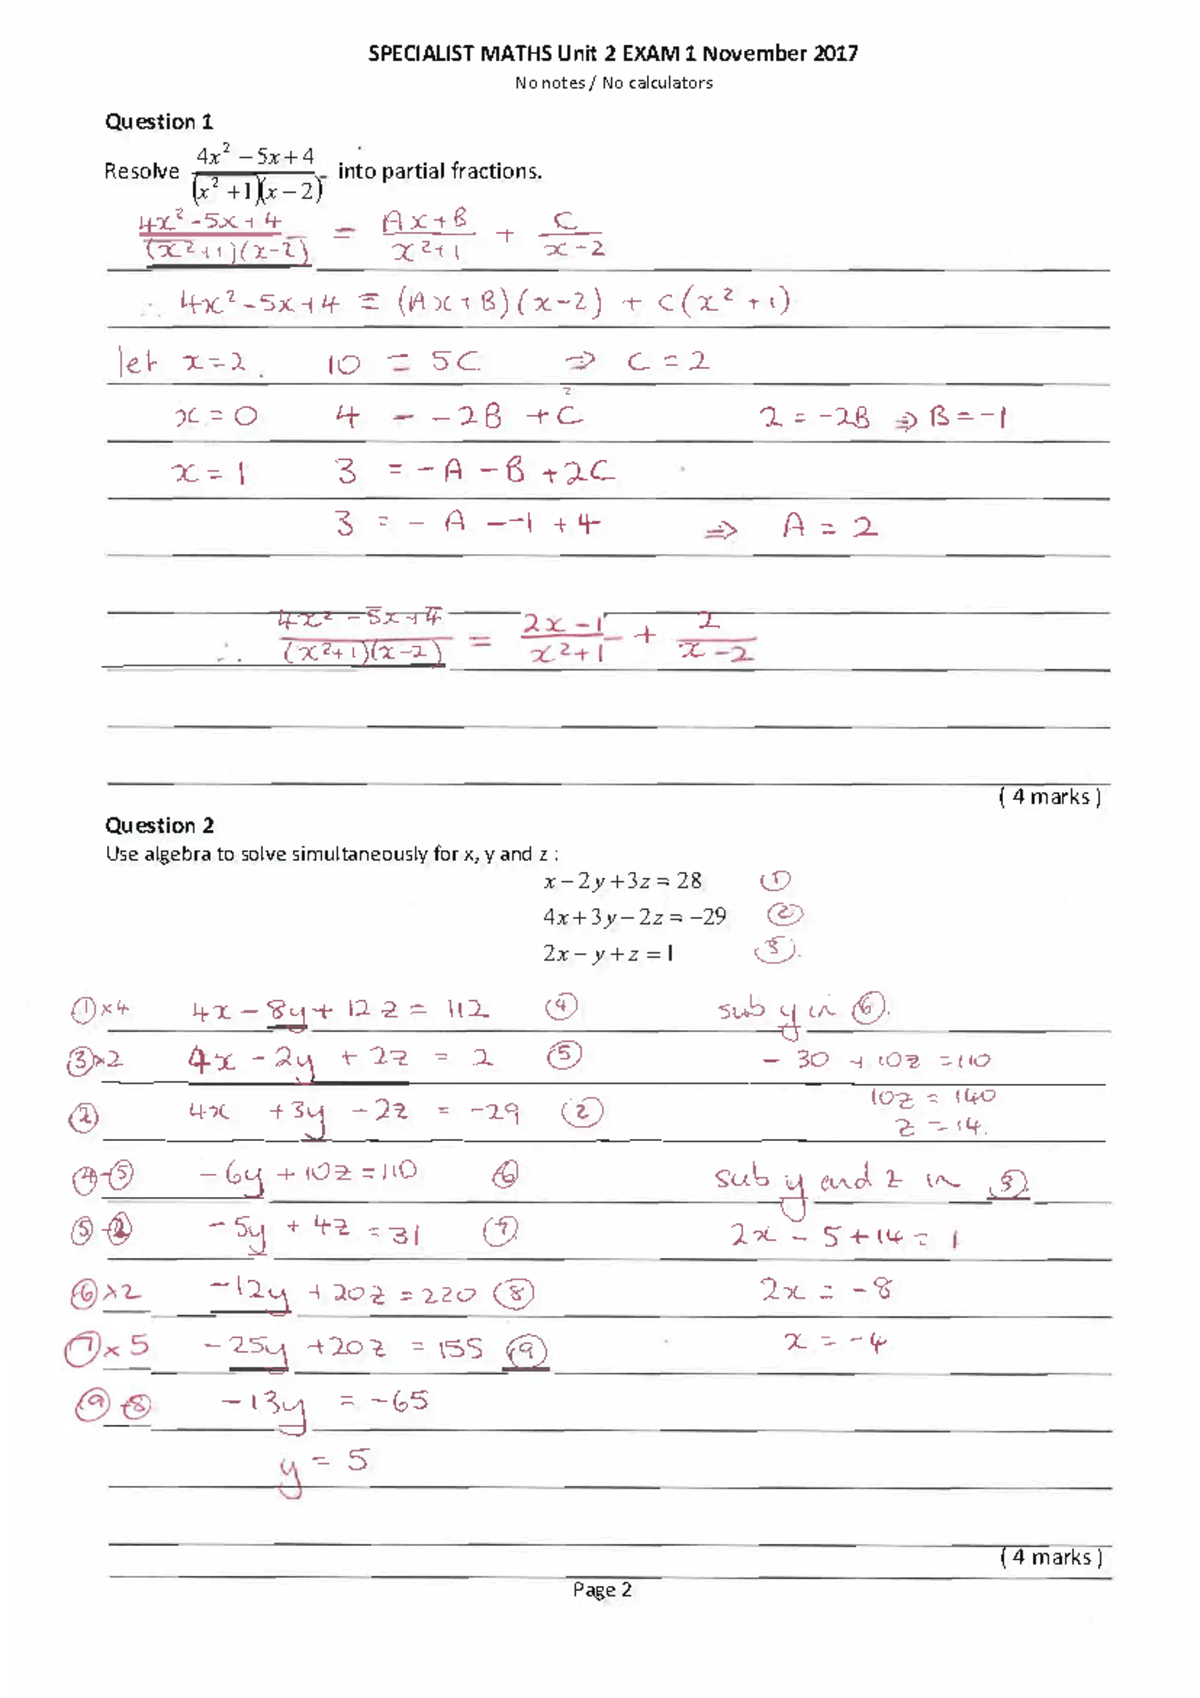 SPECIALIST MATHS Unit 2 EXAM 1 November 2017
No notes / No calculators
Question 1
Resolve (4x² – 5x + 4)/((x² + 1)(x – 2)) into partial fractions.
(4x² - 5x + 4)/((x² + 1)(x - 2)) = (Ax + B)/(x² + 1) + C/(x - 2)
∴ 4x² - 5x + 4 ≡ (Ax + B)(x - 2) + C(x² + 1)
let x = 2. 10 = 5C ⇒ C = 2
x = 0 4 = -2B + C 2 2 = -2B ⇒ B = -1
x = 1 3 = -A - B + 2C
3 = - A - -1 + 4 ⇒ A = 2
∴ (4x² - 5x + 4)/((x² + 1)(x - 2)) = (2x - 1)/(x² + 1) + 2/(x - 2)
( 4 marks )
Question 2
Use algebra to solve simultaneously for x, y and z :
x – 2y + 3z = 28 ①
4x + 3y – 2z = –29 ②
2x – y + z = 1 ③.
①x4 4x - 8y + 12z = 112 ④ sub y in ⑥.
③x2 4x - 2y + 2z = 2 ⑤ - 30 + 10z = 110
10z = 140
② 4x + 3y - 2z = -29 ② z = 14.
④-⑤ -6y + 10z = 110 ⑥ sub y and z in ③.
⑤-② -5y + 4z = 31 ⑦ 2x - 5 + 14 = 1
⑥x2 -12y + 20z = 220 ⑧ 2x = -8
⑦x5 -25y + 20z = 155 ⑨ x = -4
⑨-⑧ -13y = -65
y = 5
( 4 marks )
Page 2